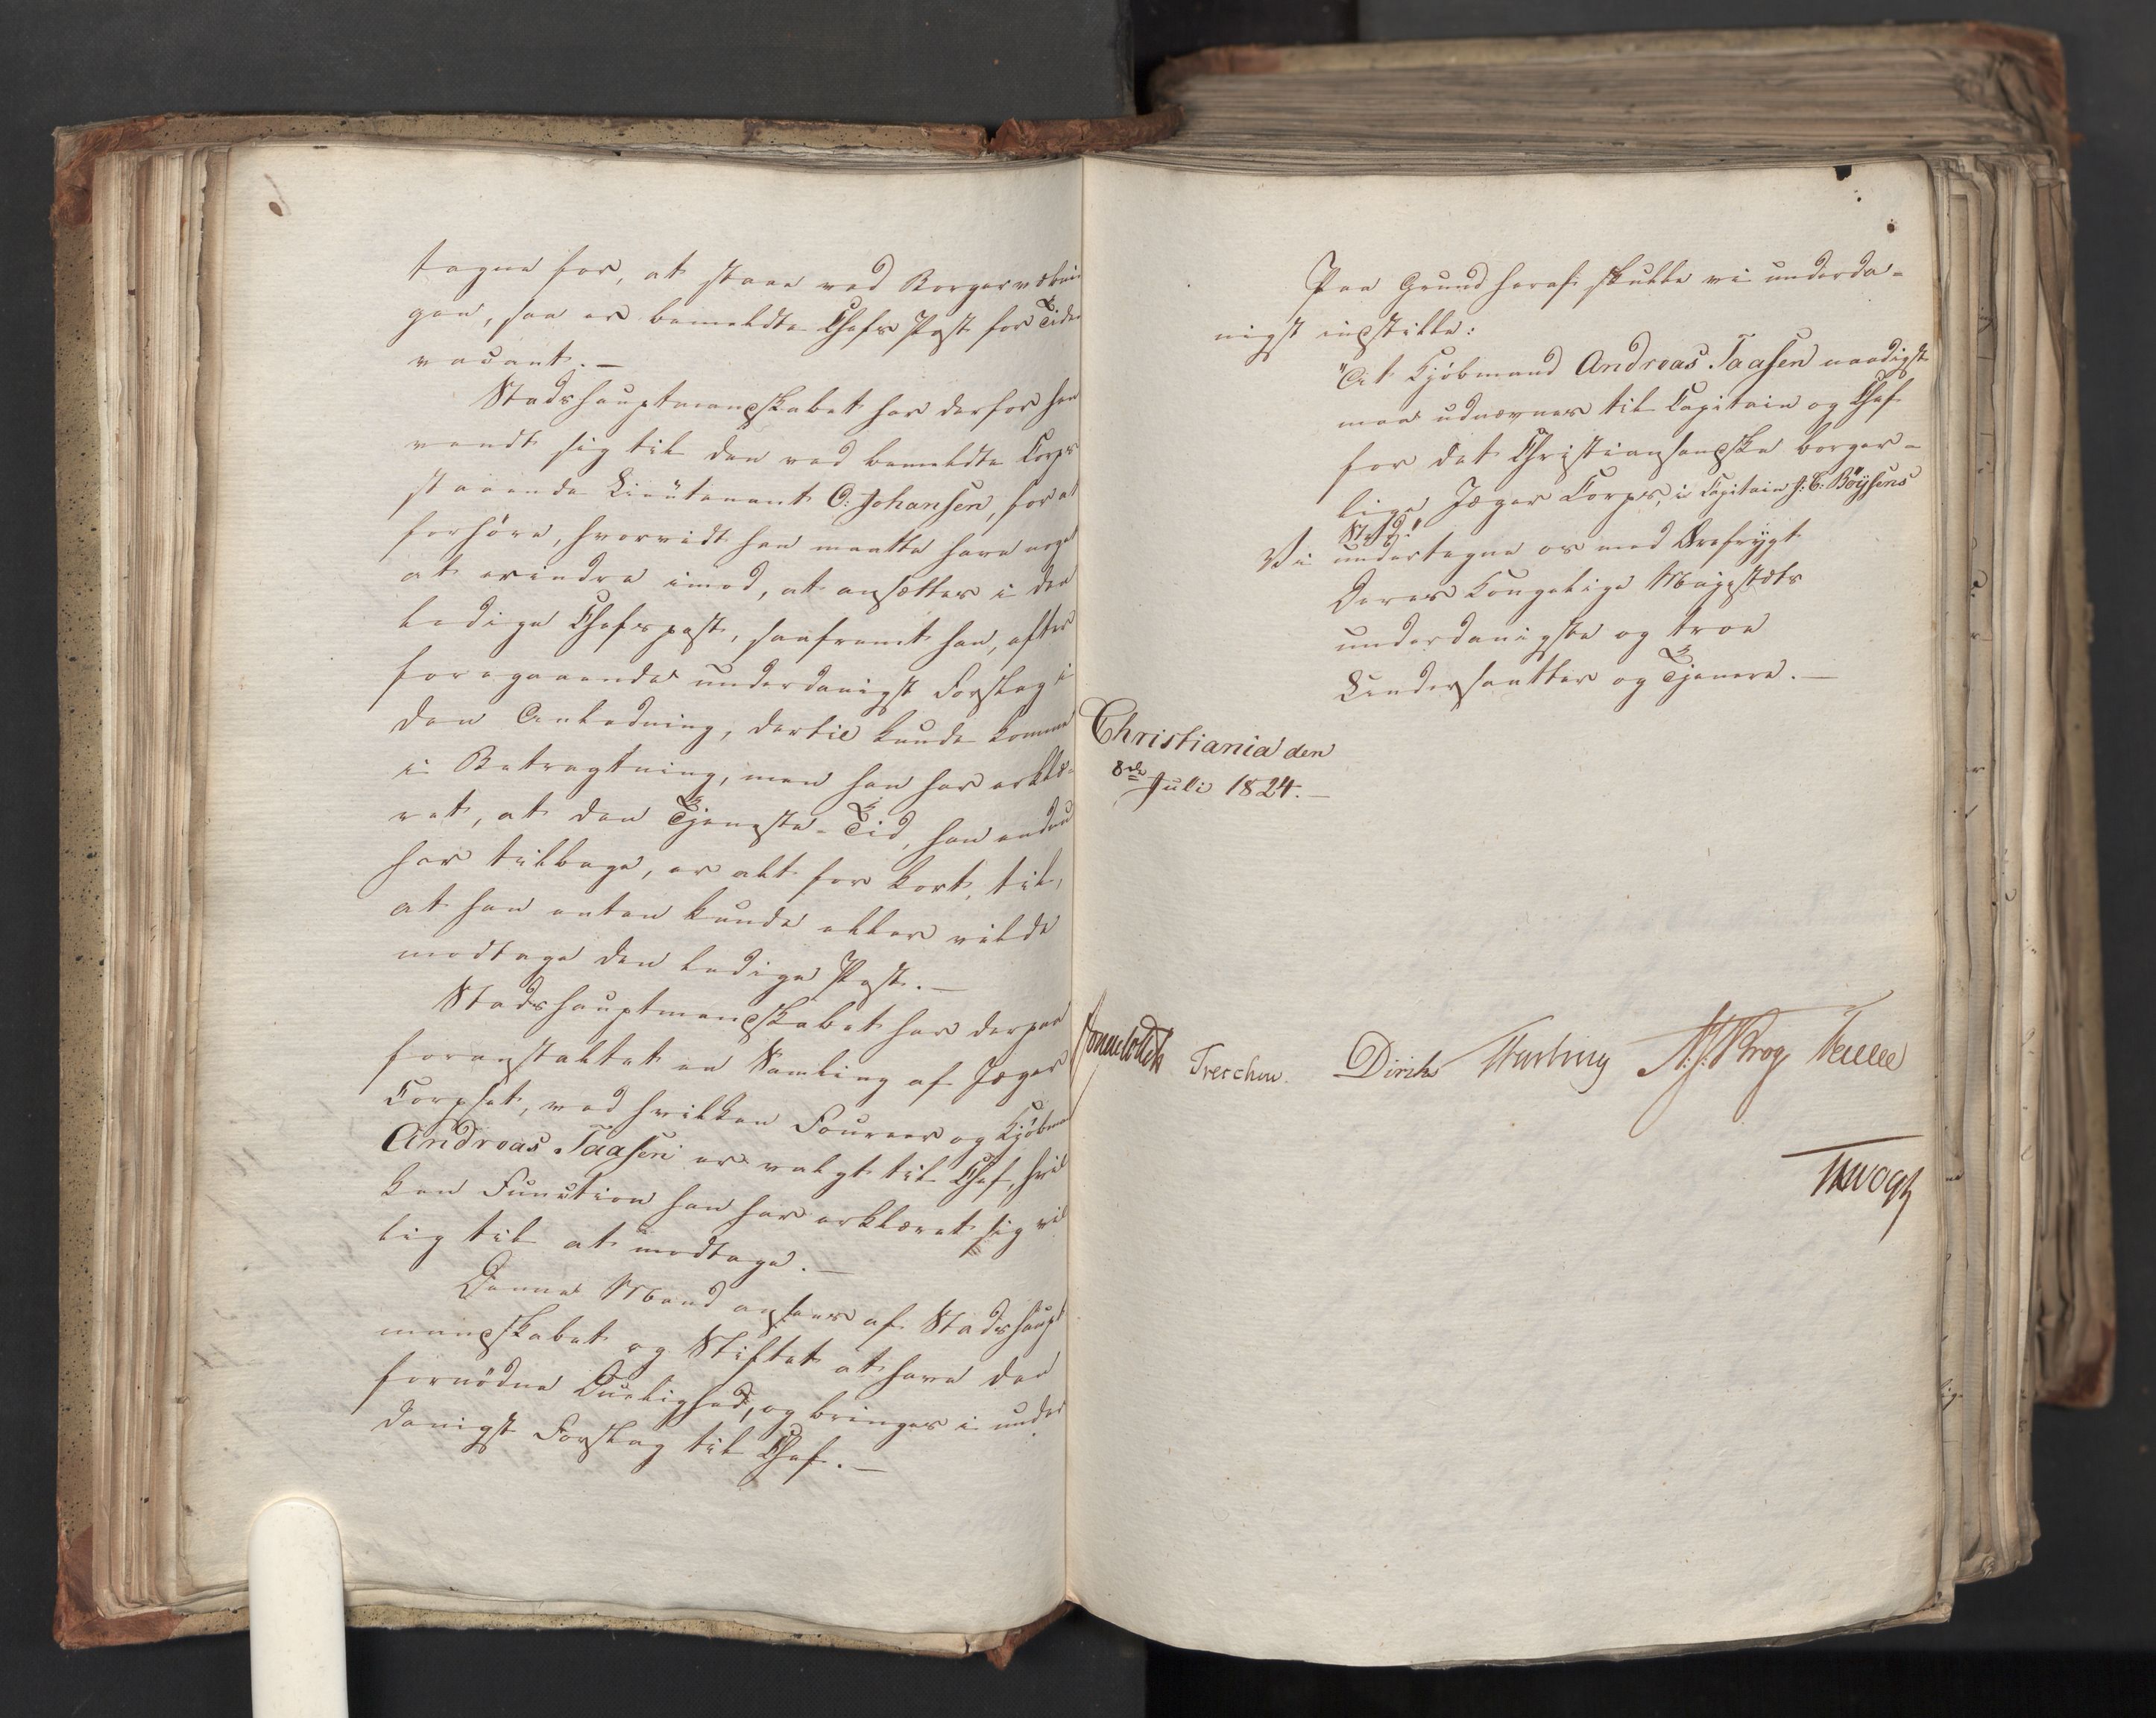 tagne for, at staae ved Borgervæbnin
gen, saa er bemeldte Chefs Post for Tiden
vacant. —
Stadshauptmandskabet har derfor hen
vendt sig til den ved bemeldte Corps
staaende Lieutenant O: Johansen, for at
forhöre, hvorvidt han maatte have noget
at erindre imod, at ansættes i den
ledige Chefspost, saafremt han, efter
foregaaende underdanigst Forslag i
den Anledning, dertil kunde komme
i Betragtning, men han har erklæ-
ret, at den Tjeneste-Tid, han endnu
har tilbage, er alt for kort, til,
at han enten kunde eller vilde
modtage den ledige Post. —
Stadshauptmandskabet har derpaa
foranstaltet en Samling af Jæger
Corpset, ved hvilken Foureer og Kjöbm
Andreas Taasen er valgt til Chef, hvil
ken Function han har erklæret sig vil
lig til at modtage. —
Denne Mand ansees af Stadshaupt
mandskabet og Stiftet at have den
fornödne Duelighed, og bringes i under
danigst Forslag til Chef. —
Paa Grund heraf skulle vi underda-
nigst indstille:
"At Kjöbmand Andreas Taasen naadigst
maa udnævnes til Capitain og Chef
for det Christiansandske borger-
lige Jæger Corps, i Capitain J: C: Böÿsens
Sted."
Vi undertegne os med Ærefrygt
Deres Kongelige Majestæts
underdanigste og troe
Undersaatter og Tjenere. —
Christiania den
8de Juli 1824. —
Sommerfeldt Treschow. Diriks Krog